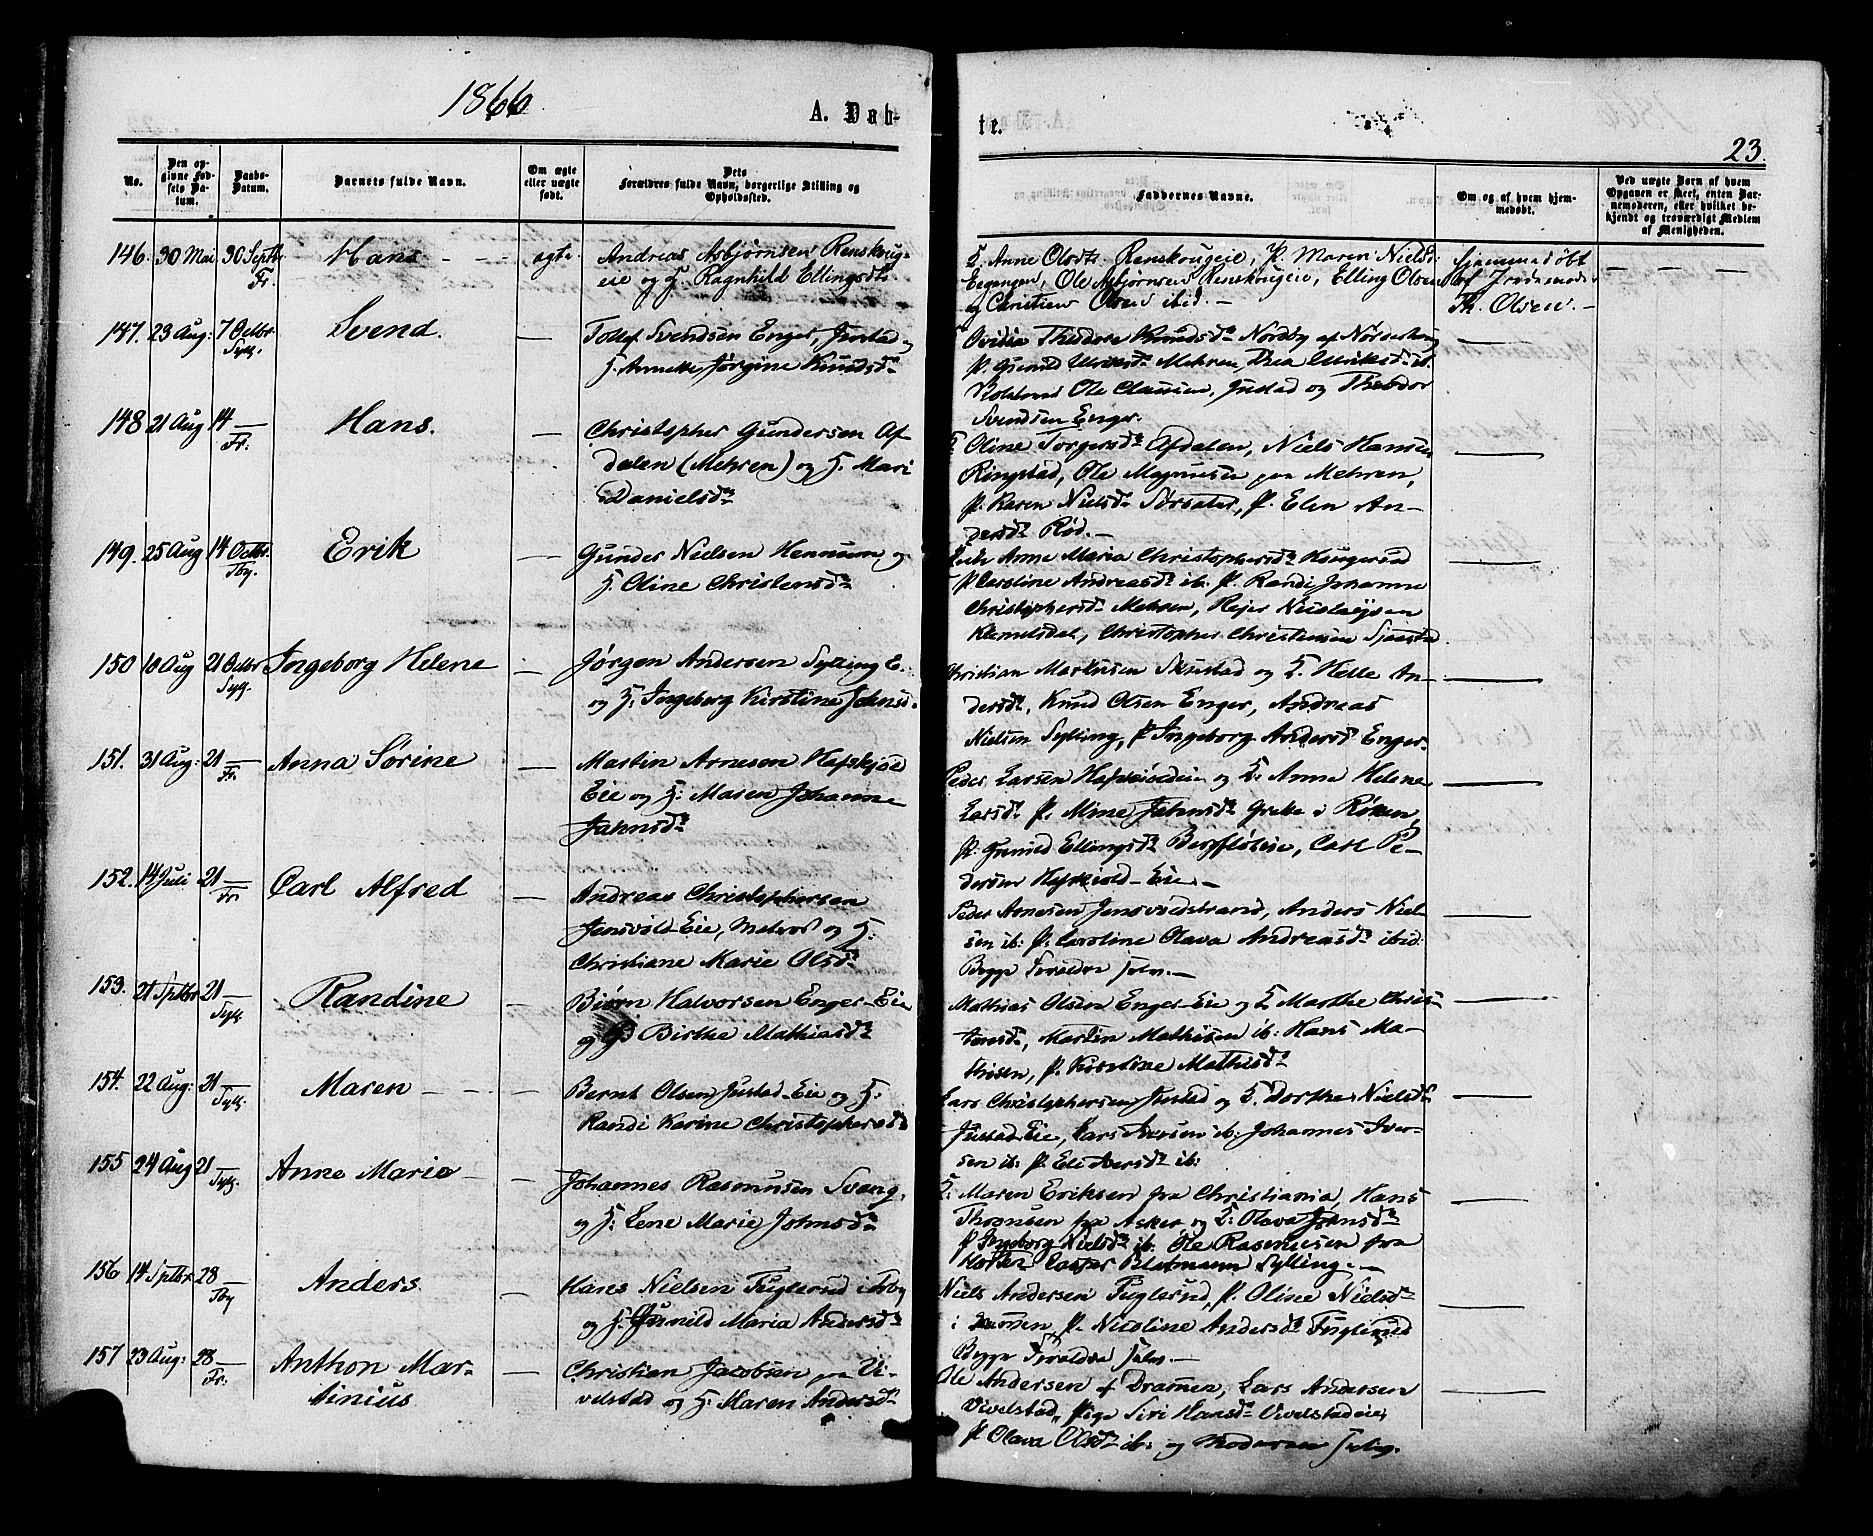 1866
A. Døb-
te.
23.
No.
Den op-
givne Fød-
sels Da-
tum.
Daabs-
Datum.
Barnets fulde Navn.
Om ægte
eller uægte
født.
Dets
Forældres fulde Navn, borgerlige Stilling og
Opholdssted.
Faddernes Navne.
Om og af hvem hjem-
medøbt.
Ved uægte Børn af hvem
Opgaven er skeet, enten Bar-
nemoderen, eller hvilket be-
kjendt og troværdigt Medlem
af Menigheden.
146. 30 Mai 30 Septbr Fr. Hans ægte
Andreas Asbjørnsen Renskoug-
eie og H. Ragnhild Ellingsdtr
H. Anne Olsdtr Renskougeie, P. Maren Nielsd.
Engengen, Ole Asbjørnsen Renskougeie, Elling Olsen
og Christian Olsen ibid. —
Hjemmedøbt
af Jordemoder
Th. Olsen. —
147. 23 Aug: 7 Octbr. Syll. Svend. —
Tollef Svendsen Enger, Justad og
H. Annette Jørgine Knudsdr
Ovidia Theodora Knudsdr Nordby af Nordehoug
P. Gunild Mehren, Thea Ulriksdr ib.
Ole Clausen, Justad og Theodor
Svendsen Enger.
148 21 Aug 14 — Fr. Hans. —
Christopher Gundersen Af-
dalen (Mehren) og H. Mari
Danielsdr
H. Oline Torgersdr Afdalen, Niels Hansen
Ringstad, Ole Magnusen paa Mehren,
P. Karen Nielsdr Sørsæter, P. Elen An-
dersdr Rød. —
149. 25 Aug 14 Octbr. Tby. Erik —
Gunder Nielsen Hennum og
H. Oline Christensdr
Anne Maria Christophersdr Kougerud
P. Caroline Andreasdr ib. P. Randi Johanne
Christophersdr Mehren, Rejer Nicolaysen
Klemetsdal, Christopher Christensen Sjaastad
150 18 Aug 21 Octbr Syll. Ingeborg Helene —
Jørgen Andersen Sylling E.
og H. Ingeborg Kirstine Johnsd.
Christian Markusen Skustad og H. Helle An-
dersdr, Knud Olsen Enger, Andreas
Nielsen Sylling, P. Ingeborg Andersd Enger.
151. 31 Aug: 21 — Fr. Anna Sørine —
Martin Arnesen Hafskjold
Eie og H. Maren Johanne
Jahnsdr
Peder Larsen Hafskjoldeie og H. Anna Helene
Larsdr P. Mine Jahnsdr Grette i Røken,
P. Gunild Ellingsdr Bergfløteie, Carl Pe-
dersen Hafskjold-Eie. —
152. 14 Juli 21 — Fr. Carl Alfred —
Andreas Christophersen
Jensvold-Eie, Matros og H.
Christiane Marie Olsdr
Peder Arnesen Jensvoldstrand, Anders Niel-
sen ib: P. Caroline Olava Andreasdr ibid:
Begge Forældre selv. —
153. 21 Sptbr 21 — Syll. Randine —
Biørn Halvorsen Enger-Eie
og H Birthe Mathiasdr
Mathias Olsen Enger-Eie og H Marthe Chris-
tensdr, Martin Mathisen ib: Hans Ma-
thisen, P. Kirstine Mathisdr
154. 22 Aug: 21 — Syll. Maren —
Bernt Olsen Justad-Eie og H.
Randi Karine Christophersdr
Lars Christophersen Justad og H. Dorthe Nielsdr
Justad-Eie, Lars Iversen ib: Johannes Iver-
sen ib: P. Eli Iversdr ib:
155 24 Aug 21 — Syll. Anne Maria —
Johannes Rasmussen Svang,
og H. Lene Marie Johnsdr
H. Maren Eriksen fra Christiania, Hans
Thomsen fra Asker og H. Olava Johnsdr
P. Ingeborg Nielsdr ib. Ole Rasmussen fra
Horten Sylling. —
156 14 Sptbr. 28 — Tby Anders. —
Hans Nielsen Fuglerud i Tby
og H. Gunild Maria Andersdr
Niels Andersen Fuglerud, P. Oline Nielsdr
i Dramen, P. Nicoline Andersdr Fuglerud
Begge Forældre selv. —
157 23 Aug: 28 — Fr. Anthon Mar-
tinius —
Christian Jacobsen paa Vi-
velstad og H. Maren Andersdr
Ole Andersen af Dramen, Lars Andersen
Vivelstad, Pige Siri Hansdr Vivelstadeie,
P. Olava Olsdr ib: og Moderen selv.